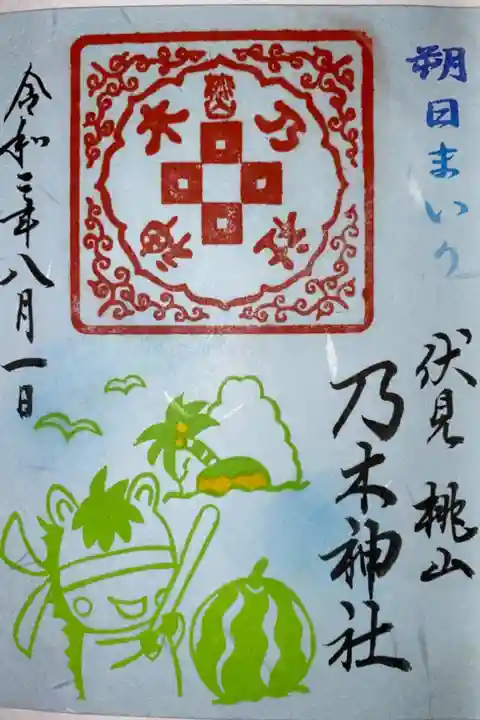 朔日まいり
伏見 桃山
乃木神社
乃木神社
令和二年八月一日